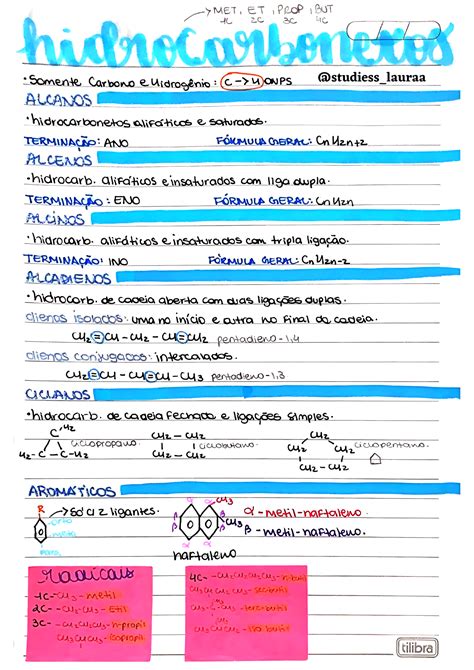 →MET, ET, PROP, BUT
1C 2C 3C 4C
hidrocarbonetos
•Somente Carbono e Hidrogênio: C → H ONPS
@studiess_lauraa
ALCANOS
•hidrocarbonetos alifáticos e saturados.
TERMINAÇÃO: ANO FÓRMULA GERAL: CnH2n+2
ALCENOS
•hidrocarb. alifáticos e insaturados com 1 liga dupla.
TERMINAÇÃO: ENO FÓRMULA GERAL: CnH2n
ALCINOS
•hidrocarb. alifáticos e insaturados com tripla ligação.
TERMINAÇÃO: INO FÓRMULA GERAL: CnH2n-2
ALCADIENOS
•hidrocarb. de cadeia aberta com duas ligações duplas.
dienos isolados: uma no início e outra no final da cadeia.
CH2=CH-CH2-CH=CH2 pentadieno-1,4
dienos conjugados: intercalados.
CH2=CH-CH=CH-CH3 pentadieno-1,3
CICLANOS
•hidrocarb. de cadeia fechada e ligações simples.
CH2 ciclopropano
H2-C-C-H2
CH2-CH2 ciclobutano
CH2-CH2
CH2 ciclopentano
CH2 CH2
CH2-CH2
AROMÁTICOS
R →só c/ 2 ligantes.
orto
meta
para
α α CH3
β β CH3
β β
α α
naftaleno
α-metil-naftaleno
β-metil-naftaleno
radicais
1C -CH3 - metil
2C - -CH2-CH3 - etil
3C - -CH2CH2CH3-n-propil
CH3CHCH3-isopropil
4C- -CH2CH2CH2CH3-n-butil
CH3CHCH2CH3-sec-butil
tilibra